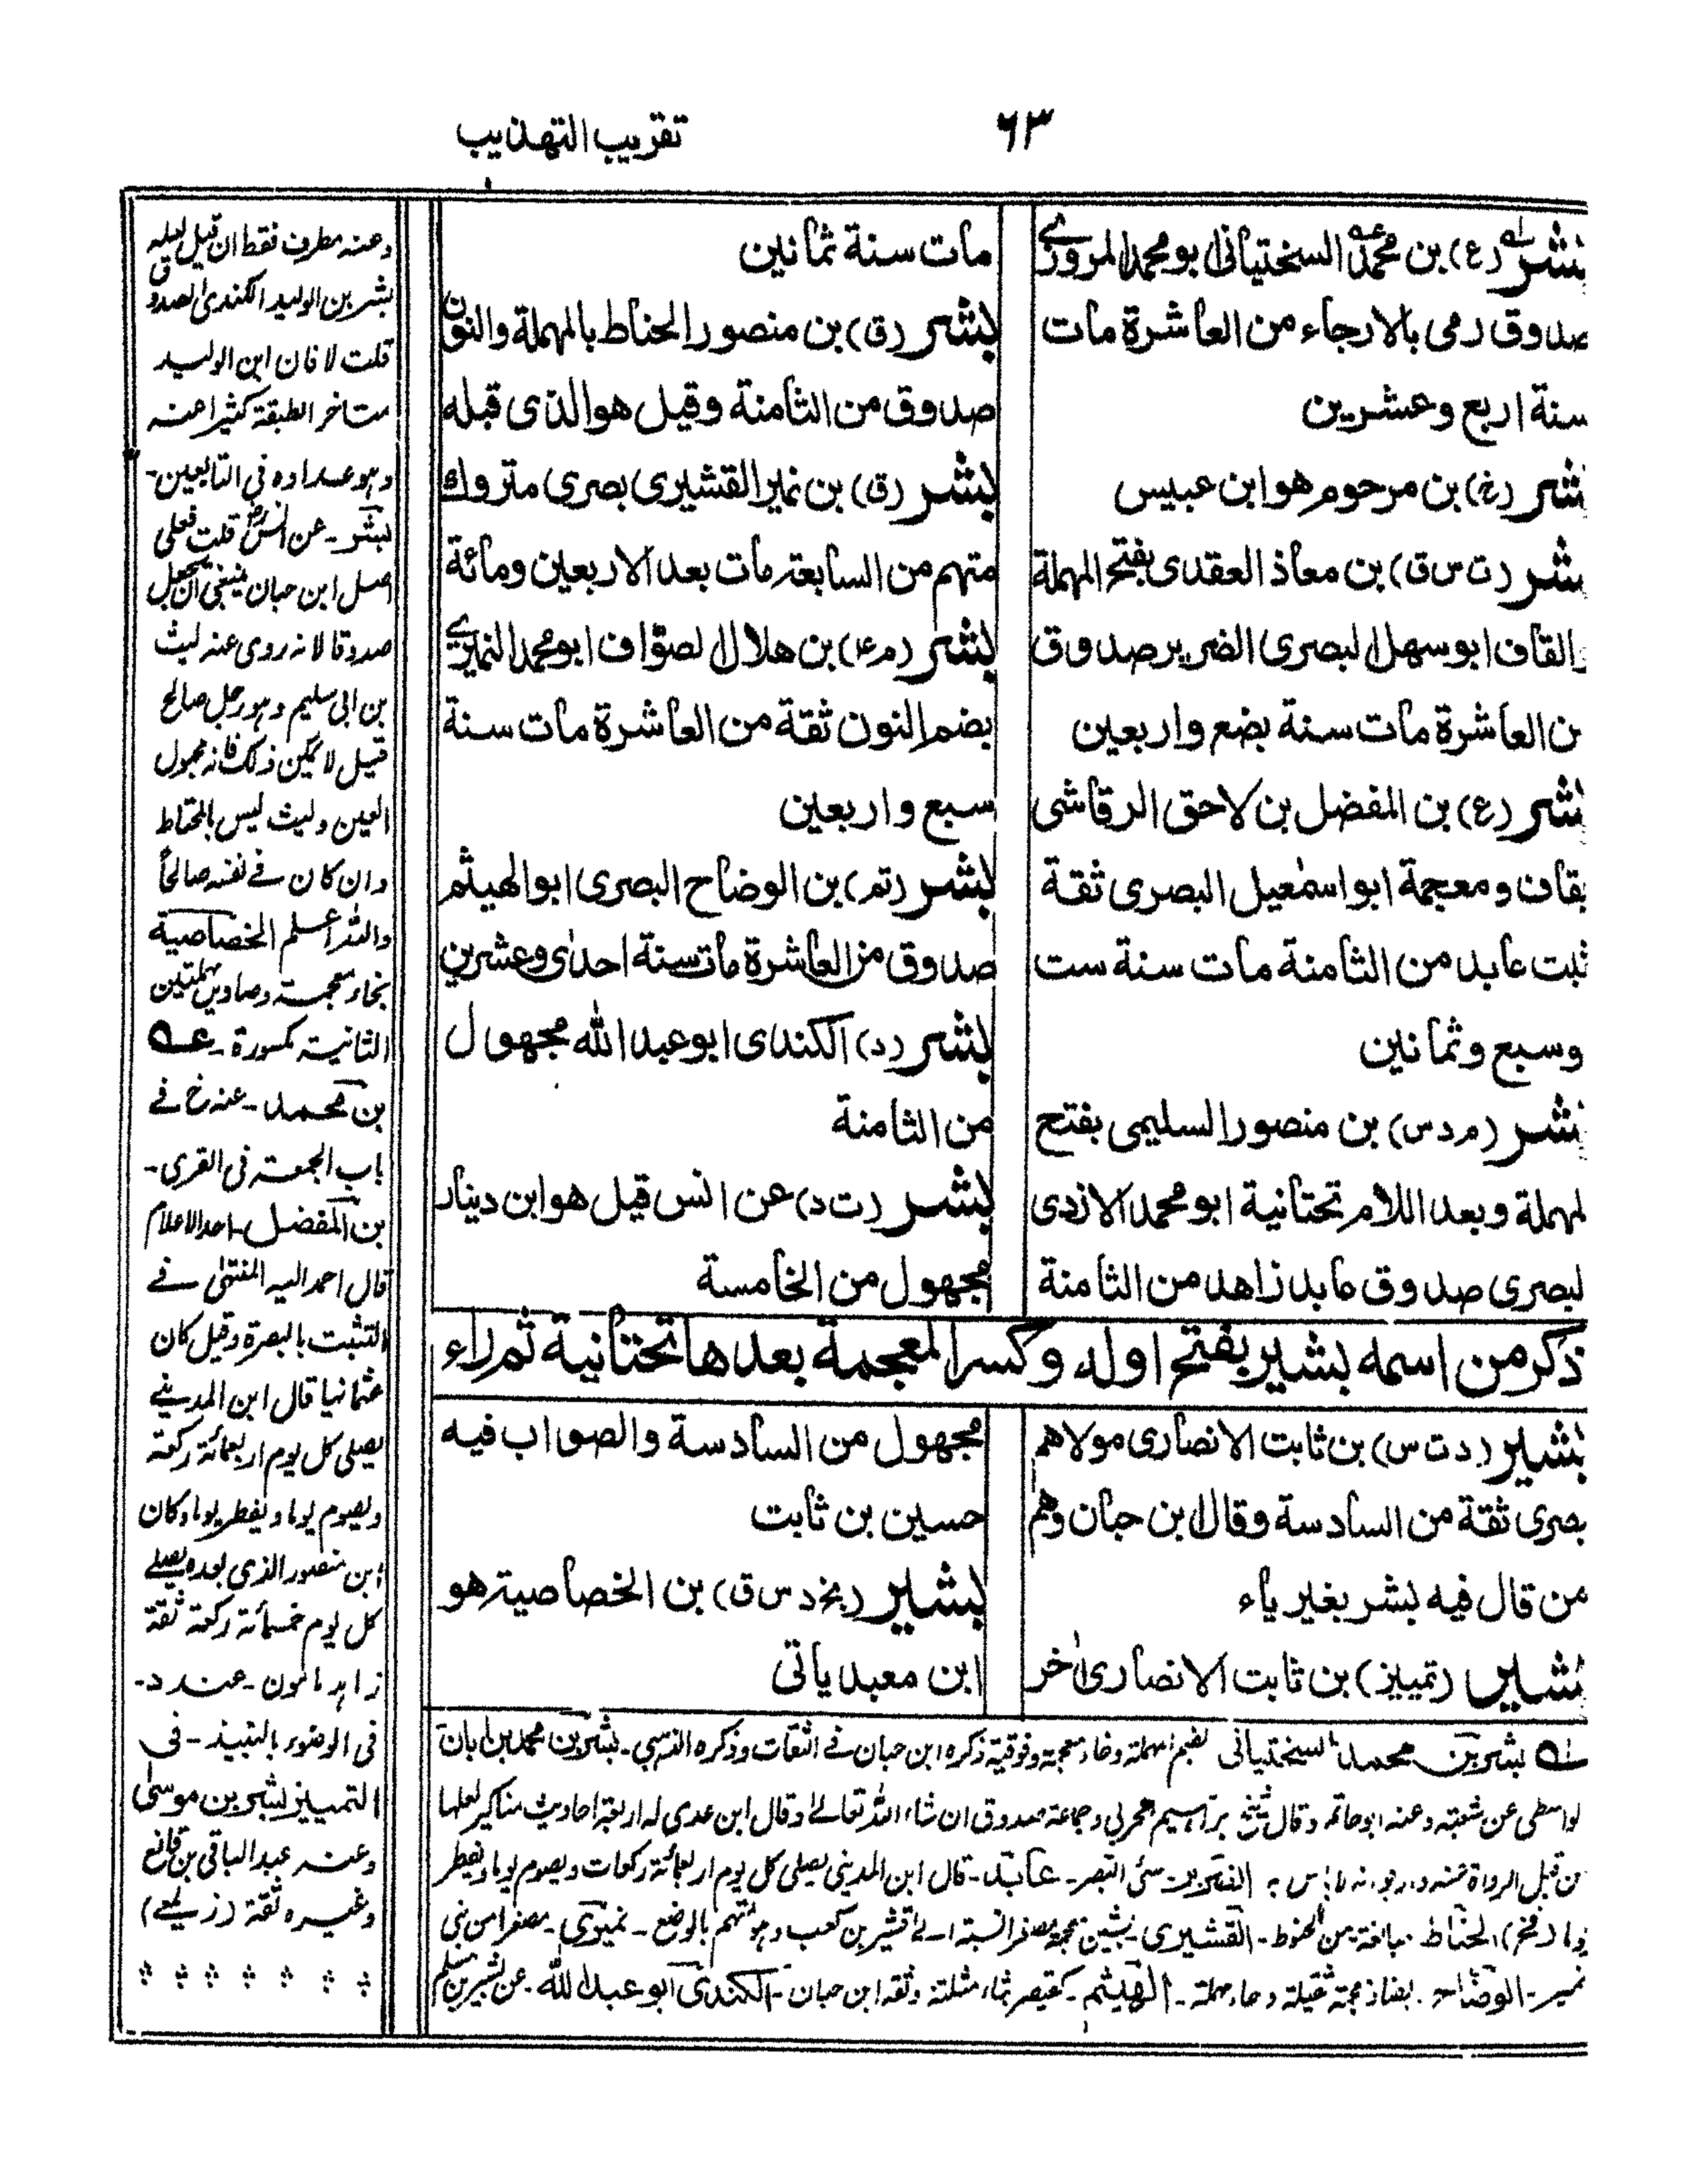 ٦٣
تقريب التهذيب
بشر (ع) بن محمد السختياني ابو محمد المروزي
صدوق رمى بالارجاء من العاشرة مات
سنة اربع وعشرين
بشر (خ) بن مرحوم هو ابن عبيس
بشر (ت س ق) بن معاذ العقدى بفتح المهملة
والقاف ابو سهل البصرى الضرير صدوق
من العاشرة مات سنة بضع واربعين
بشر (ع) بن المفضل بن لاحق الرقاشى
بقاف ومعجمة ابو اسمعيل البصرى ثقة
ثبت عابد من الثامنة مات سنة ست
وسبع وثمانين
بشر (م د س) بن منصور السليمى بفتح
المهملة وبعد اللام تحتانية ابو محمد الازدى
البصرى صدوق عابد زاهد من الثامنة
مات سنة ثمانين
بشر (ق) بن منصور الحناط بالمهملة والنون
صدوق من الثامنة وقيل هو الذى قبله
بشر (ق) بن نمير القشيرى بصرى متروك
متهم من السابعة مات بعد الاربعين ومائة
بشر (م ٤) بن هلال الصواف ابو محمد النميرى
بضم النون ثقة من العاشرة مات سنة
سبع واربعين
بشر (تم) بن الوضاح البصرى ابو الهيثم
صدوق من العاشرة مات سنة احدى وعشرين
بشر (د) الكندى ابو عبد الله مجهول
من الثامنة
بشر (ت د) عن انس قيل هو ابن دينار
مجهول من الخامسة
ذكر من اسمه بشير بفتح اوله وكسر المعجمة بعدها تحتانية ثم راء
بشير (د ت س) بن ثابت الانصارى مولاهم
بصرى ثقة من السادسة وقال ابن حبان وهم
من قال فيه بشر بغير ياء
بشير (تمييز) بن ثابت الانصارى اخر
مجهول من السادسة والصواب فيه
حسين بن ثابت
بشير (بخ د س ق) بن الخصاصية هو
ابن معبد ياتى
بشر بن محمد السختيانى بضم مهملة وخاء معجمة وفوقية ذكره ابن حبان فے الثقات وذكره الذهبي - بشر بن محمد بن ابان
الواسطى عن شعبة وعنه ابو حاتم وقال شيخ ابراهيم الحربي وجماعة صدوق ان شاء الله تعالے وقال ابن عدى له اربعة احاديث مناكير لعلها
من قبل الرواة عنه - عابد - قال ابن المديني يصلى كل يوم اربعمائة ركعات ويصوم يوما ويفطر
يوما الحناط مبالغة من الحنوط - القشيرى - بشين معجمة مصغرا نسبة الے قشير بن كعب وهو متهم بالوضع - نميرى - مصغرا من بنى
نمير - الوضاح - بضاد معجمة ثقيلة وحاء مهملة - الهيثم - كقيصر بثاء مثلثة وثقه ابن حبان - الكندى ابو عبد الله - عن بشير بن مسلم
وعنه مطرف فقط ان قيل لعله
بشر بن الوليد الكندى الصدوق
قلت لا فان ابن الوليد
متاخر الطبقة كثيرا عنه
وهو عداده فى التابعين -
بشر - عن انس قلت فعلى
اصل ابن حبان ينبغي ان يجعل
صدوقا لانه روى عنه ليث
بن ابى سليم وهو رجل صالح
قيل لا يمكن ذلك فانه مجهول
العين وليث ليس بالمحتاط
وان كان فے نفسه صالحا
والله اعلم الخصاصية
بخاء معجمة وصادين مهملتين
الثانية مكسورة - عه
بن محمد - عنه خ فے
باب الجمعة فى القرى -
بن المفضل - احد الاعلام
قال احمد اليه المنتهى فے
التثبت بالبصرة وقيل كان
عثمانيا قال ابن المدينے
يصلى كل يوم اربعمائة ركعة
ويصوم يوما ويفطر يوما وكان
ابن منصور الذى بعده يصلے
كل يوم خمسمائة ركعة ثقة
زاهد مامون - عند د -
فى الوضوء بالنبيذ - فى
التمييز بشر بن موسى
وعنه عبد الباقى بن قانع
وغيره ثقة (زيلعے)